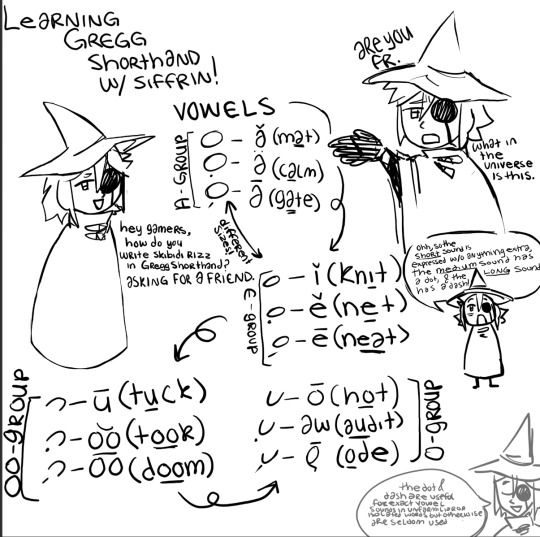 LeaRNING
GREGG
Shorthand
w/ SIFFRIN!
are you
FR.
VOWELS
A-GROUP
ă (mat)
ȧ (calm)
ā (gate)
what in
the
universe
is this.
hey gamers,
how do you
write Skibidi Rizz
in Gregg Shorthand?
ASKING FOR A FRIEND.
different
sizes!
Ohh, so the
SHORT sound is
expressed w/o anything extra,
the medium sound has
a dot, & the LONG sound
has a dash!
E-GROUP
ĭ (knit)
ĕ (net)
ē (neat)
OO-GROUP
ŭ (tuck)
o͝o (took)
o͞o (doom)
O-GROUP
ŏ (hot)
aw (audit)
ō (ode)
the dot &
dash are useful
for exact vowel
sounds in unfamiliar or
isolated words but otherwise
are seldom used